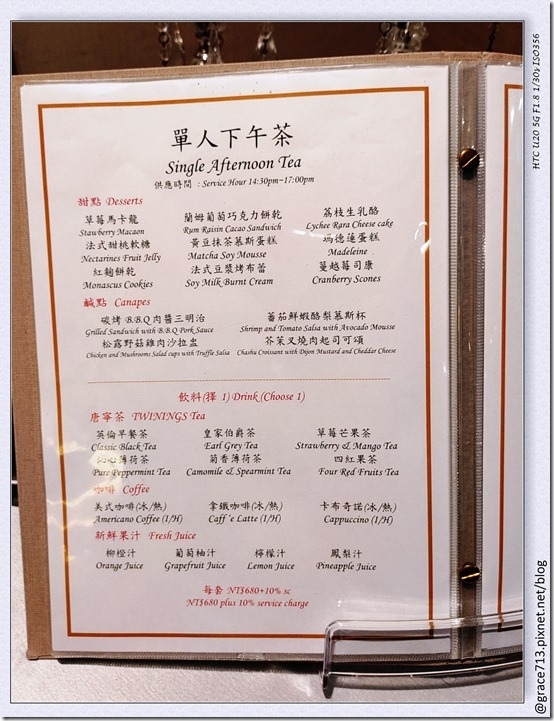 單人下午茶
Single Afternoon Tea
供應時間 : Service Hour 14:30pm~17:00pm
甜點 Desserts
草莓馬卡龍 蘭姆葡萄巧克力餅乾 荔枝生乳酪
Stawberry Macaon Rum Raisin Cacao Sandwich Lychee Rara Cheese cake
法式甜桃軟糖 黃豆抹茶慕斯蛋糕 瑪德蓮蛋糕
Nectarines Fruit Jelly Matcha Soy Mousse Madeleine
紅麴餅乾 法式豆漿烤布蕾 蔓越莓司康
Monascus Cookies Soy Milk Burnt Cream Cranberry Scones
鹹點 Canapes
碳烤 B.B.Q 肉醬三明治 蕃茄鮮蝦酪梨慕斯杯
Grilled Sandwich with B.B.Q Pork Sauce Shrimp and Tomato Salsa with Avocado Mousse
松露野菇雞肉沙拉盅 芥茉叉燒肉起司可頌
Chicken and Mushrooms Salad cups with Truffle Salsa Chashu Croissant with Dijon Mustard and Chedder Cheese
飲料(擇 1) Drink (Choose 1)
唐寧茶 TWININGS Tea
英倫早餐茶 皇家伯爵茶 草莓芒果茶
Classic Black Tea Earl Grey Tea Strawberry & Mango Tea
沁心薄荷茶 菊香薄荷茶 四紅果茶
Pure Peppermint Tea Camomile & Spearmint Tea Four Red Fruits Tea
咖啡 Coffee
美式咖啡(冰/熱) 拿鐵咖啡(冰/熱) 卡布奇諾(冰/熱)
Americano Coffee (I/H) Caff 'e Latte (I/H) Cappuccino (I/H)
新鮮果汁 Fresh Juice
柳橙汁 葡萄柚汁 檸檬汁 鳳梨汁
Orange Juice Grapefruit Juice Lemon Juice Pineapple Juice
每套 NT$680+10% sc
NT$680 plus 10% service charge
HTC U20 5G F1.8 1/30s ISO356
@grace713.pixnet.net/blog